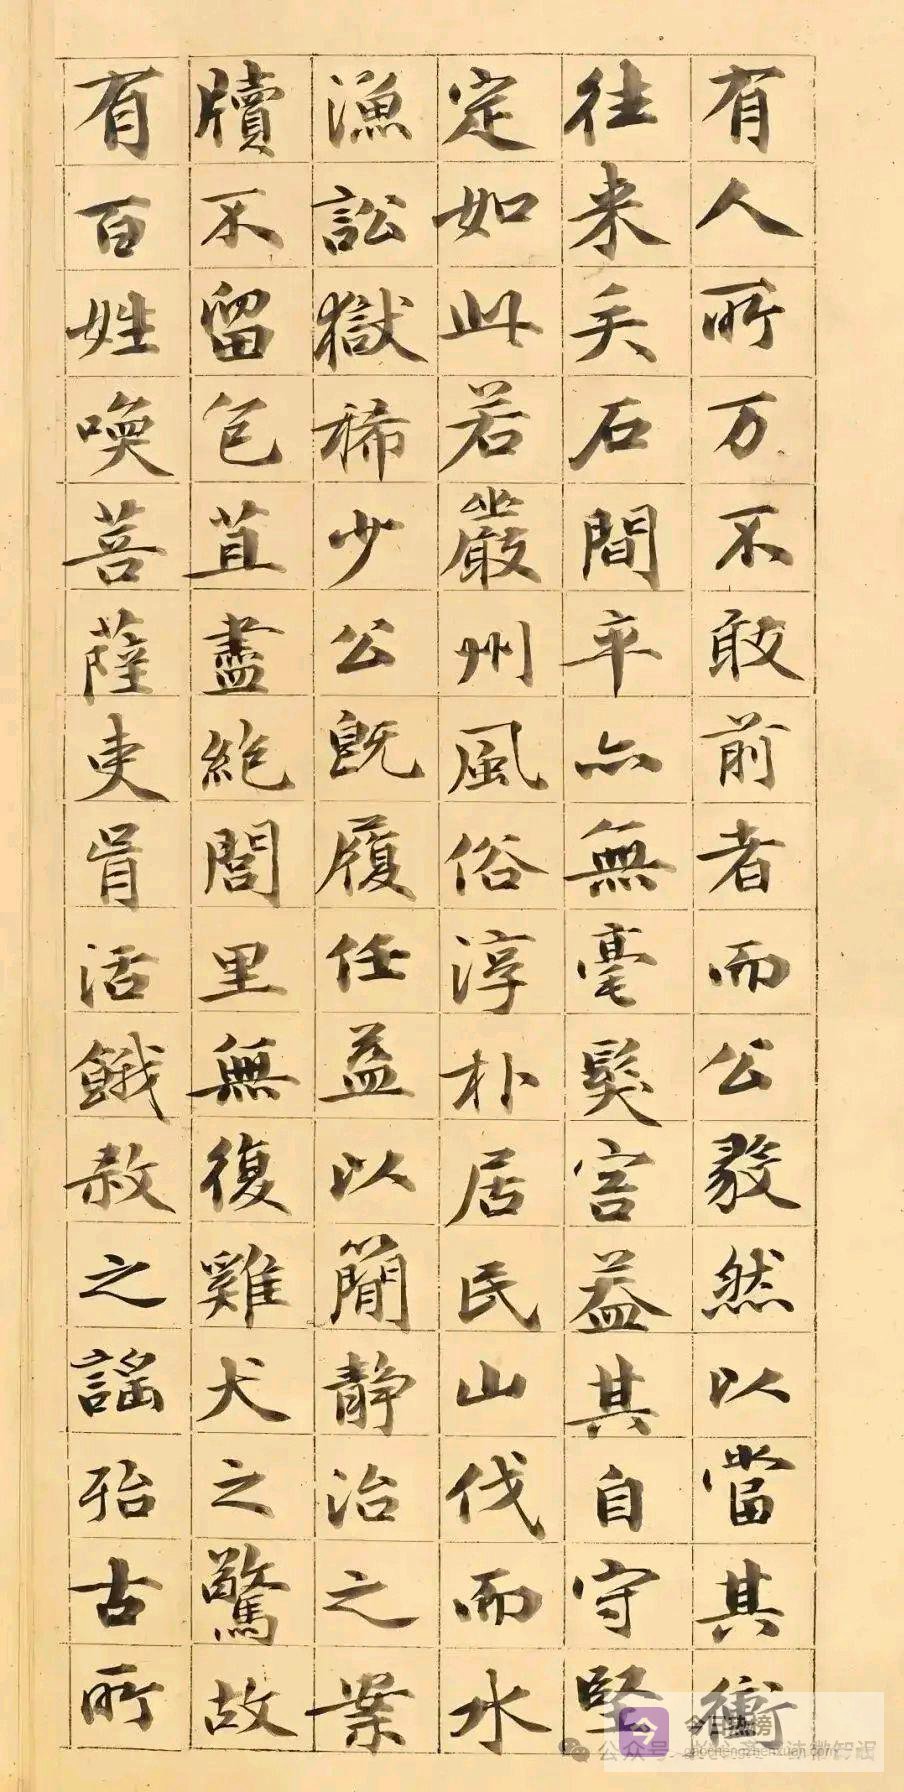 有人所万不敢前者而公毅然以當其衝
往来矢石間卒亦無毫髮害益其自守堅
定如此若嚴州風俗淳朴居民山伐而水
漁訟獄稀少公既履任益以簡靜治之案
牘不留包苴盡絕閭里無復雞犬之驚故
有百姓喚菩薩吏胥活餓莩之謠殆古所
今日热榜
公众号
zhaochengzhenxuan.com